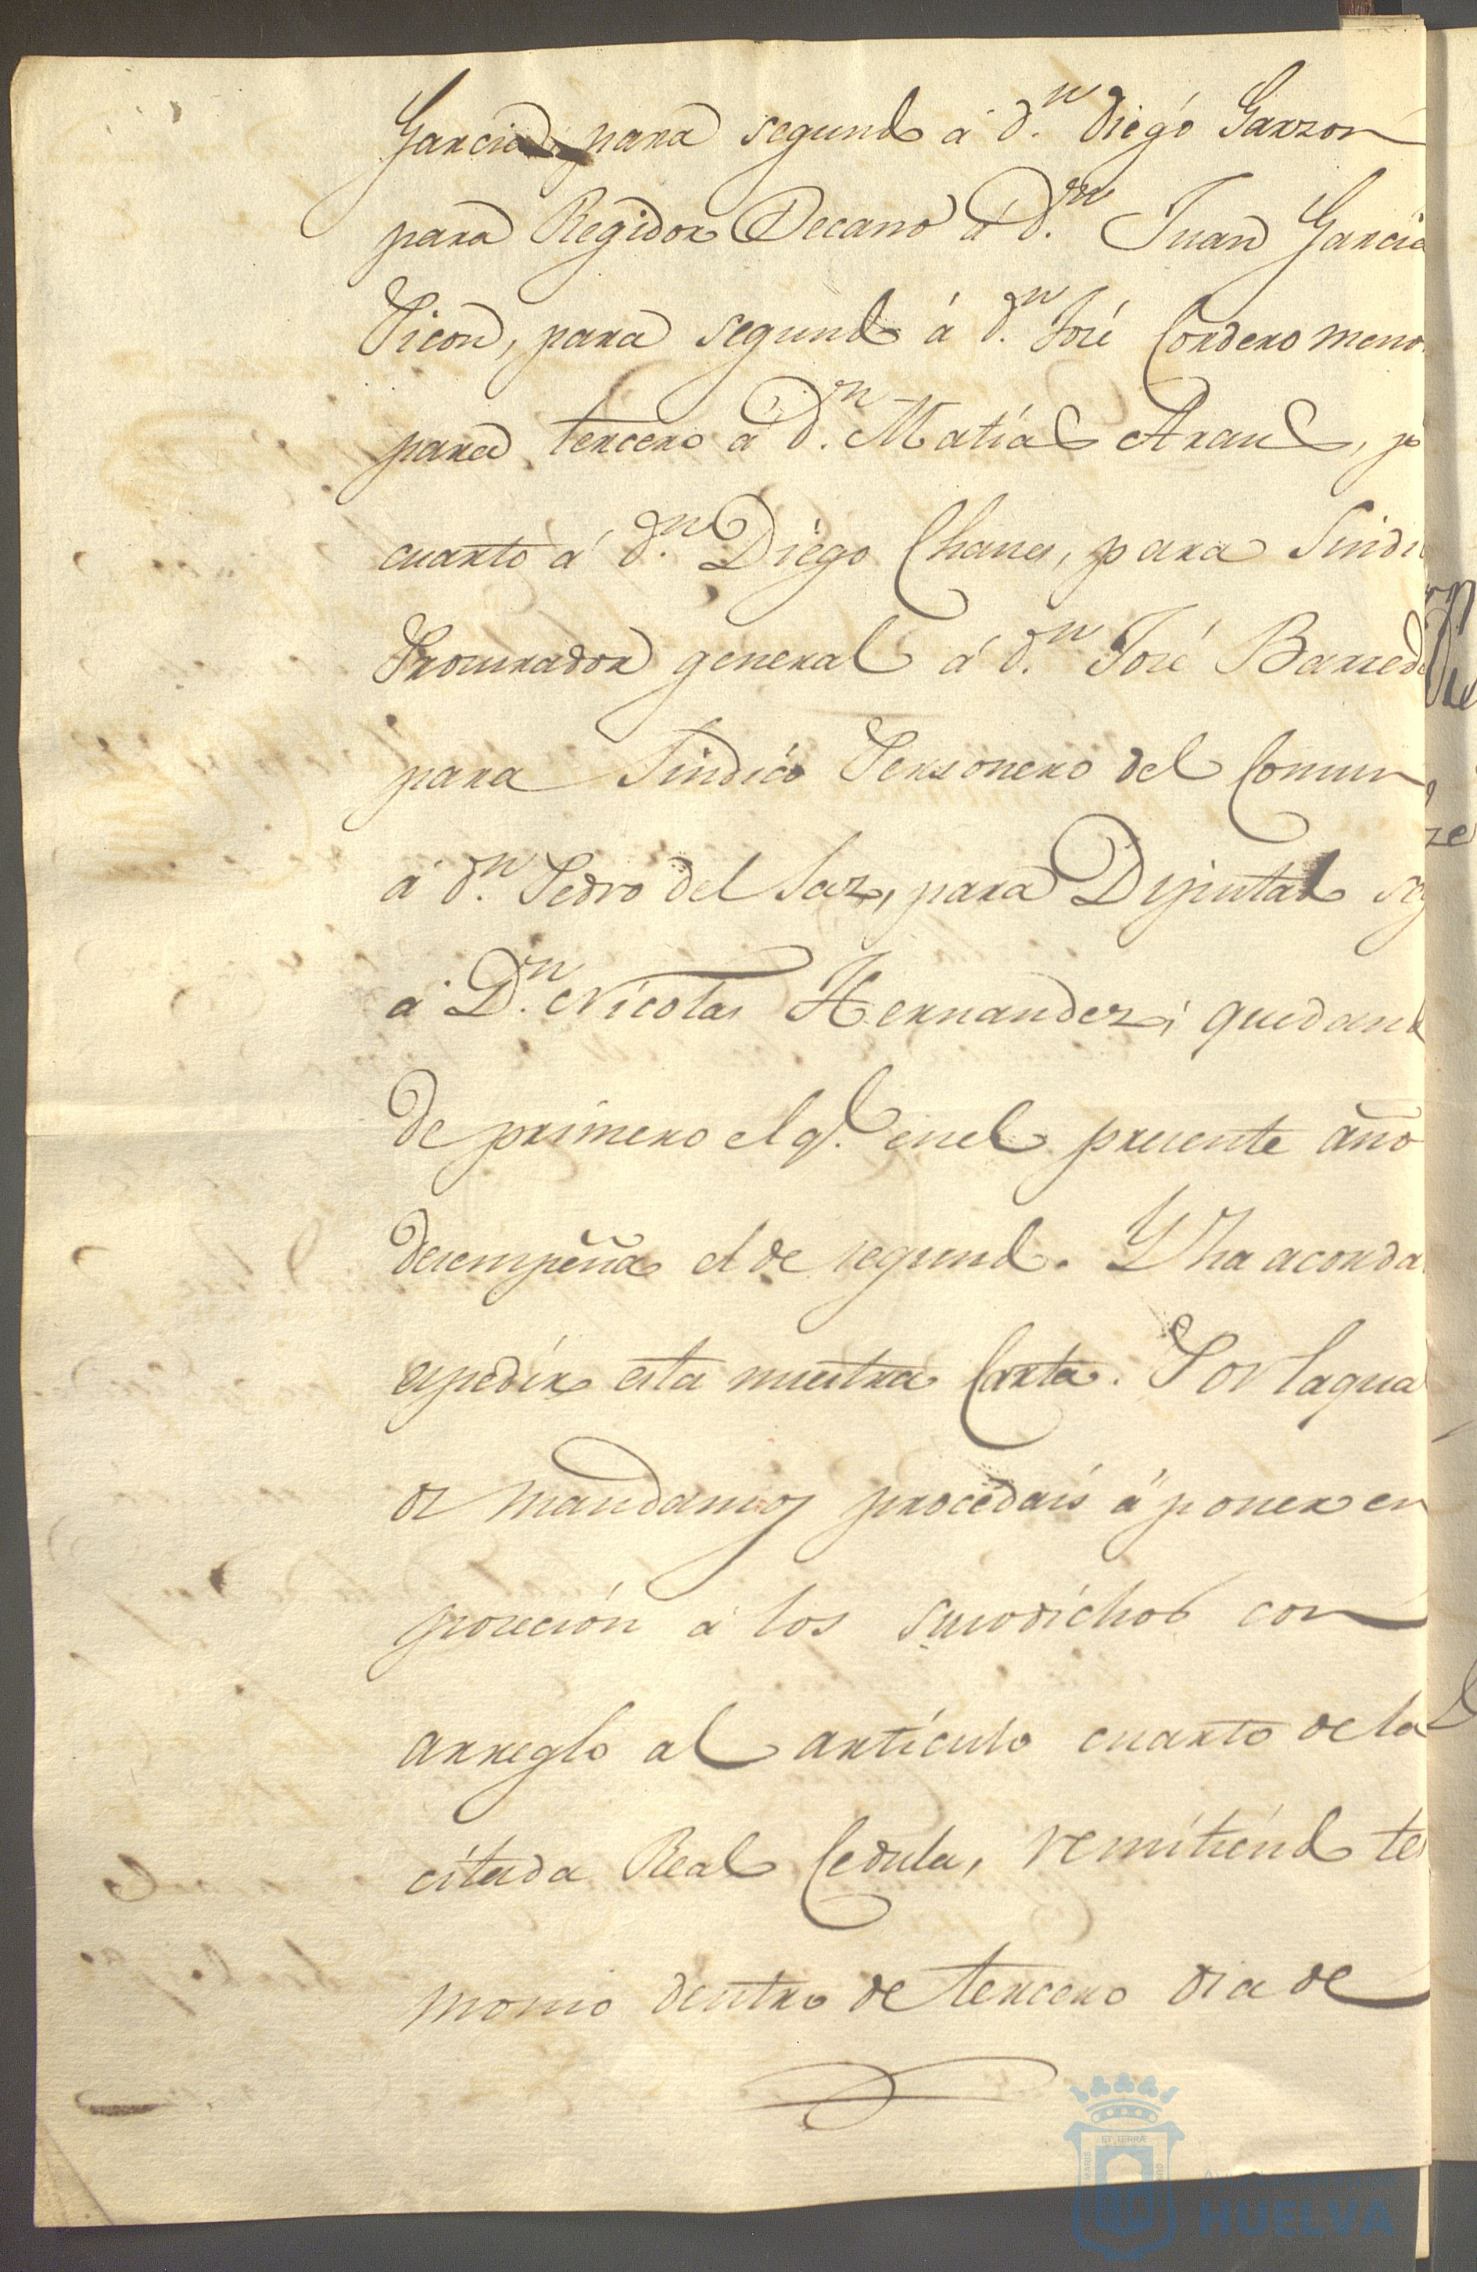 Garcia, para segundo á d.n Diego Garzon
para Regidor Decano á d.n Juan Garcia
Picon, para segundo á d.n José Cordero meno
para tercero á d.n Matías Arau, p.
cuarto á d.n Diego Chaves, para Sindi
Procurador general á d.n José Barred
para Sindico Personero del Comun
á d.n Pedro del Saz, para Diputado seg
á D.n Nicolas Hernandez; quedand
de primero el q.l en el presente año
desempeña el de segundo. Y ha acorda
espedir esta nuestra Carta. Por la qual
os mandamos procedais á poner en
posecion á los susodichos con
arreglo al artículo cuarto de la
citada Real Cedula, remitiendo tes
monio dentro de tercero dia de
HUELVA